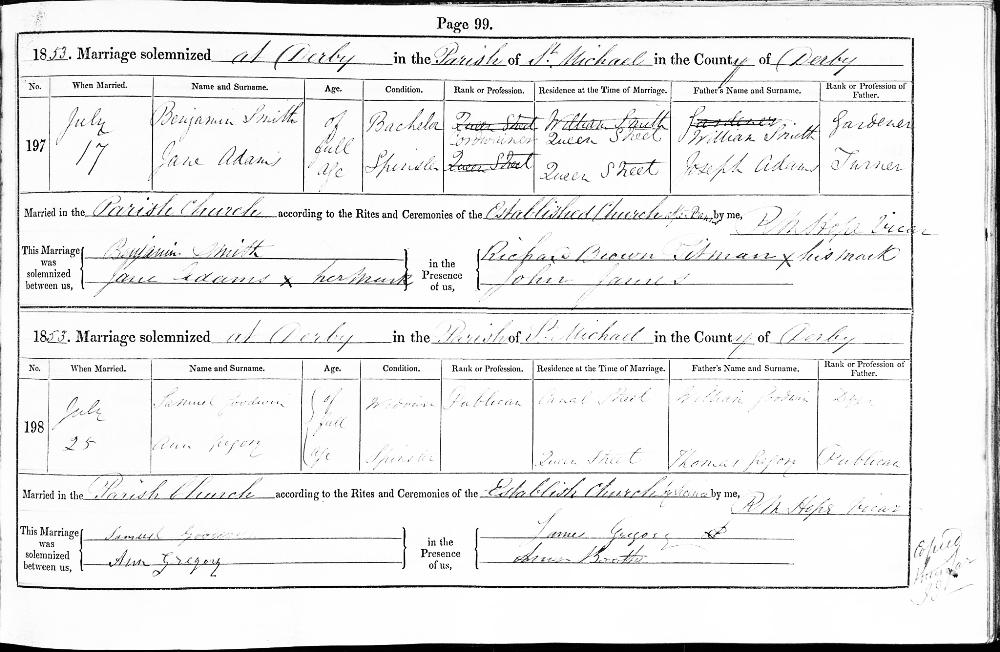 Page 99.
1853. Marriage solemnized at Derby in the Parish of St. Michael in the County of Derby
No. When Married. Name and Surname. Age. Condition. Rank or Profession. Residence at the Time of Marriage. Father's Name and Surname. Rank or Profession of Father.
197 July 17 Benjamin Smith of full age Bachelor Queen Street William Smith Queen Street Gardener William Smith Gardener
Jane Adams Spinster Queen Street Queen Street Joseph Adams Turner
Married in the Parish Church according to the Rites and Ceremonies of the Established Church by me, R M Hope Vicar
This Marriage was solemnized between us,
Benjamin Smith
Jane Adams x her mark
in the Presence of us,
Richard Brown Titman x his mark
John James
1853. Marriage solemnized at Derby in the Parish of St. Michael in the County of Derby
No. When Married. Name and Surname. Age. Condition. Rank or Profession. Residence at the Time of Marriage. Father's Name and Surname. Rank or Profession of Father.
198 July 25 Samuel Goodwin of full age Widower Publican Canal Street William Goodwin Dyer
Ann Gregory Spinster Queen Street Thomas Gregory Publican
Married in the Parish Church according to the Rites and Ceremonies of the Establish Church by me, R M Hope Vicar
This Marriage was solemnized between us,
Samuel Goodwin
Ann Gregory
in the Presence of us,
James Gregory
Booth